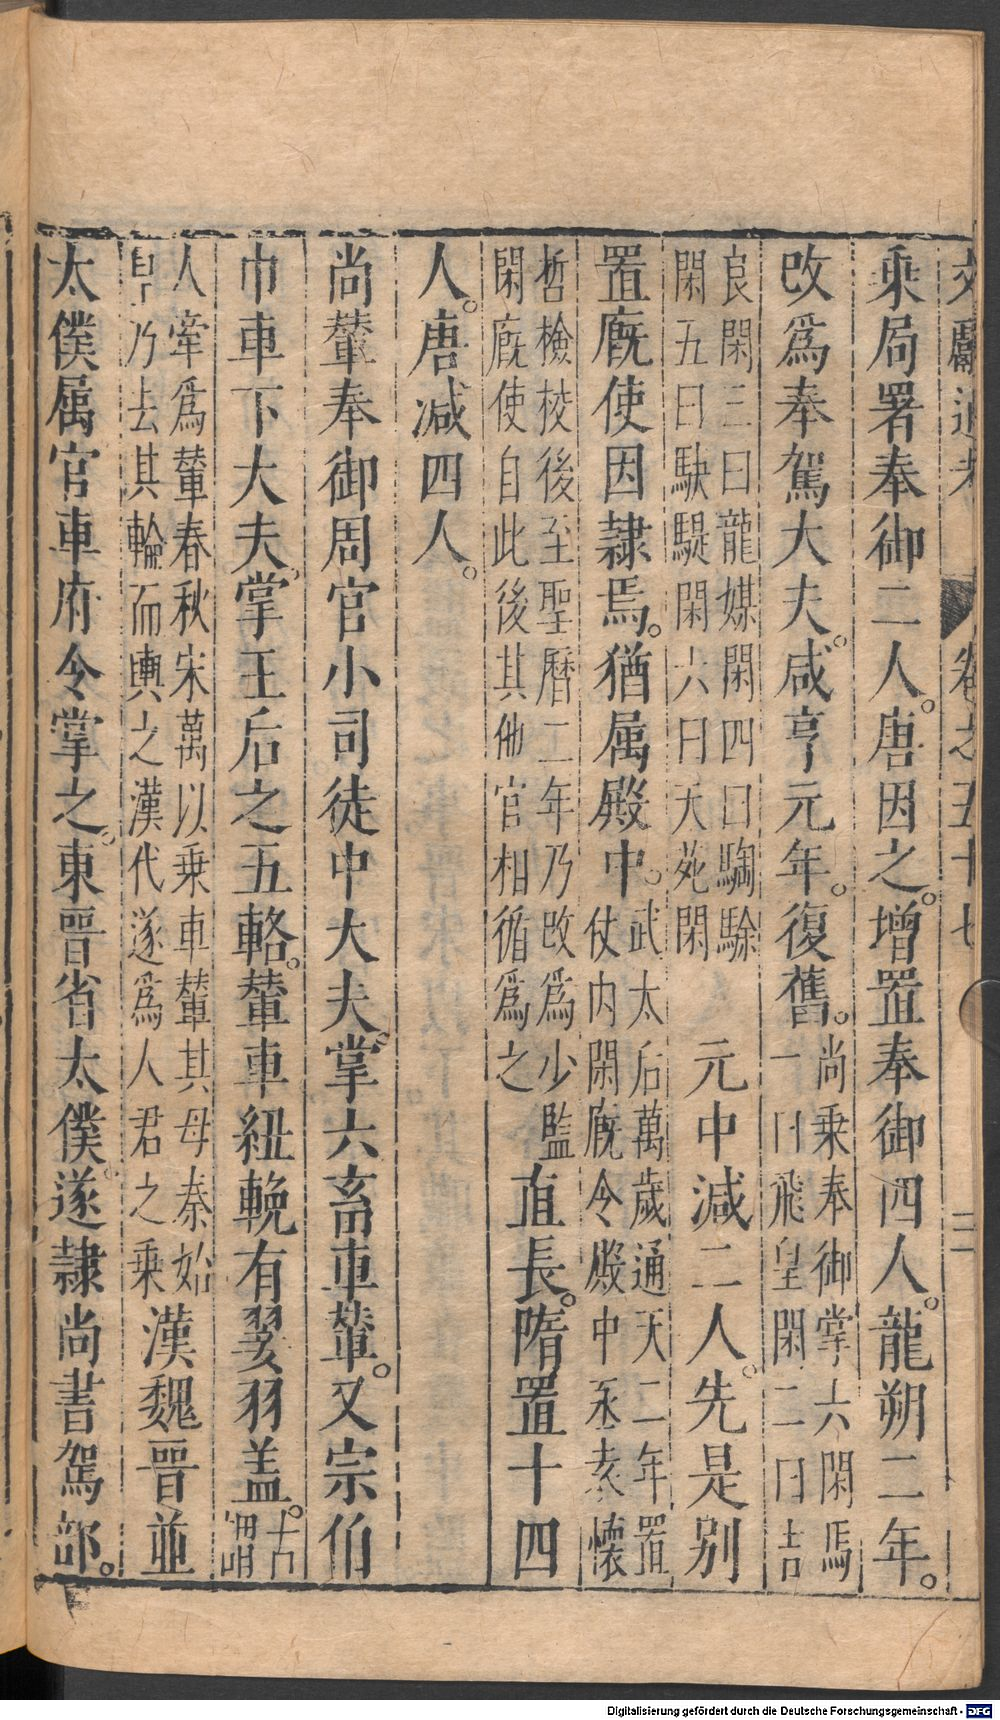 文獻通考 卷之五十七 二
乘局署奉御二人。唐因之。增置奉御四人。龍朔二年。
改爲奉駕大夫。咸亨元年。復舊。
尚乗奉御掌六閑馬
一曰飛皇閑二曰吉
良閑三曰龍媒閑四曰騊駼
閑五曰駃騠閑六曰天苑閑
元中減二人。先是别
置廐使因隷焉。猶属殿中。
武太后萬歲通天二年置
仗内閑廐令殿中丞袁懷
哲檢校後至聖曆二年乃改爲少監
閑廐使自此後其他官相循爲之
直長。隋置十四
人。唐減四人。
尚輦奉御周官小司徒中大夫掌六畜車輦。又宗伯
巾車下大夫掌王后之五輅。輦車紐輓有翣羽盖。
古
謂
人牽爲輦春秋宋萬以乗車輦其母秦始
皇乃去其輪而輿之漢代遂爲人君之乗
漢魏晉並
太僕属官車府令掌之。東晉省太僕遂隷尚書駕部。
Digitalisierung gefördert durch die Deutsche Forschungsgemeinschaft - DFG